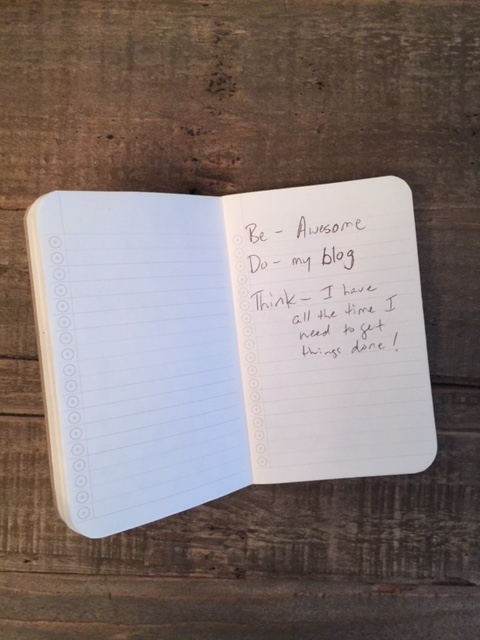 Be - Awesome
Do - my blog
Think - I have
all the time I
need to get
things done!